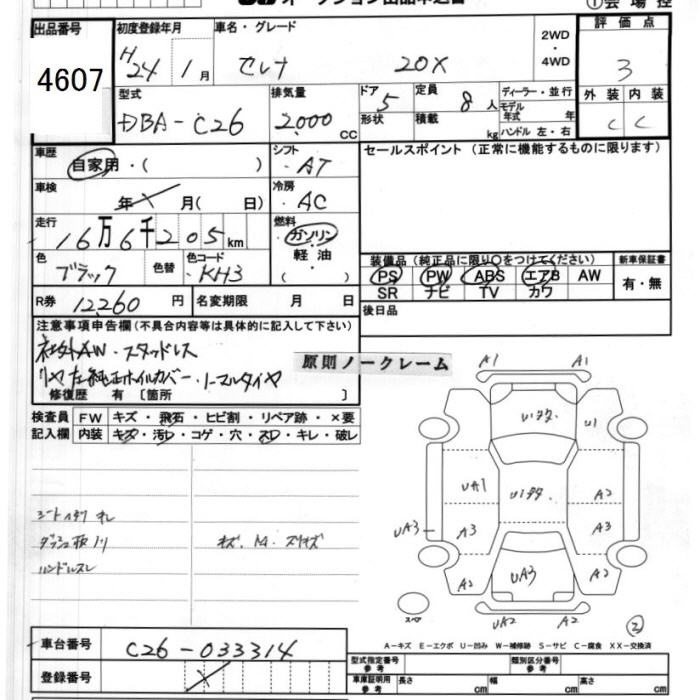 出品番号 初度登録年月 車名・グレード 2WD・4WD 評価点
4607 H24 1月 セレナ 20X 3
外装 内装
C C
型式 排気量 ドア 定員 ディーラー・並行
DBA-C26 2,000 CC 5 8人 モデル年式 年
形状 積載 kg ハンドル 左・右
車歴 シフト セールスポイント(正常に機能するものに限ります)
自家用・( ) AT
車検 冷房
年 月( 日) AC
走行 燃料
16万6千205km ガソリン・軽油( )
色 色替 色コード 装備品(純正品に限り〇をつけてください) 新車保証書
ブラック KH3 PS PW ABS エアB AW 有・無
SR ナビ TV カワ
R券 12,260円 名変期限 月 日 後日品
注意事項申告欄(不具合内容等は具体的に記入して下さい)
社外AW・スタッドレス
純正ホイルカバー・ノーマルタイヤ
修復歴 有 [箇所 ]
原則ノークレーム
検査員 FW キズ・飛石・ヒビ割・リペア跡・×要
記入欄 内装 キズ・汚レ・コゲ・穴・スレ・キレ・破レ
A1 A1
U1
UA1 A2
UA3 A3 A3
A2 UA3 A2
スペア UA2 A2 ②
ハンドルスレ
A-キズ E-エクボ U-凹み W-補修跡 S-サビ C-腐食 XX-交換済
車台番号 C26-033314
登録番号
型式指定番号 参考 類別区分番号 参考
車庫証明用 参考 長さ cm 幅 cm 高さ cm